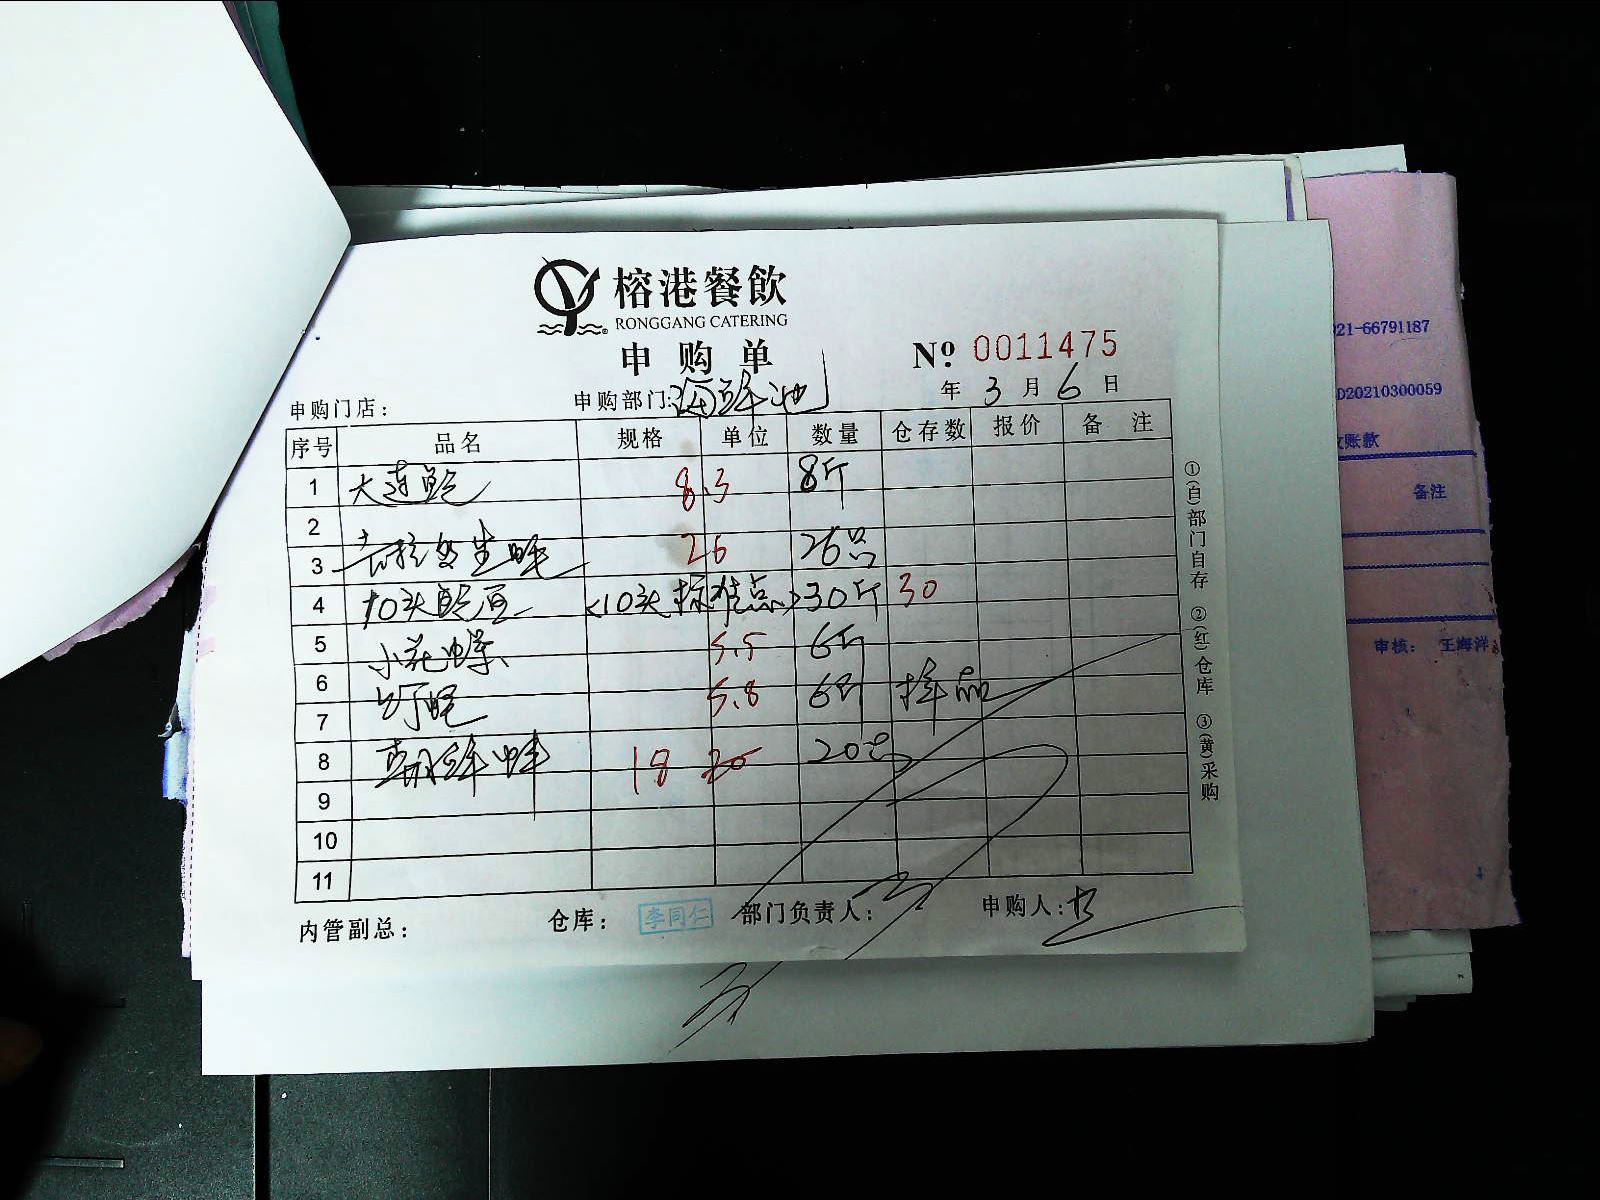 榕港餐飲
RONGGANG CATERING
申购单
№ 0011475
申购门店： 申购部门：海鲜池 年 3 月 6 日
序号 品名 规格 单位 数量 仓存数 报价 备注
1 大连鲍 8.3 8斤
2
3 吉拉多生蚝 26 26只
4 10头鲍 <10头 标准点> 30斤 30
5 小花螺 5.5 6斤
6
7 5.8 6斤 样品
8 朝鲜蚌 18 20 20
9
10
11
内管副总： 仓库： 李同仁 部门负责人： 申购人：
①(白)部门自存 ②(红)仓库 ③(黄)采购
021-66791187
D20210300059
收账款
备注
审核： 王海洋